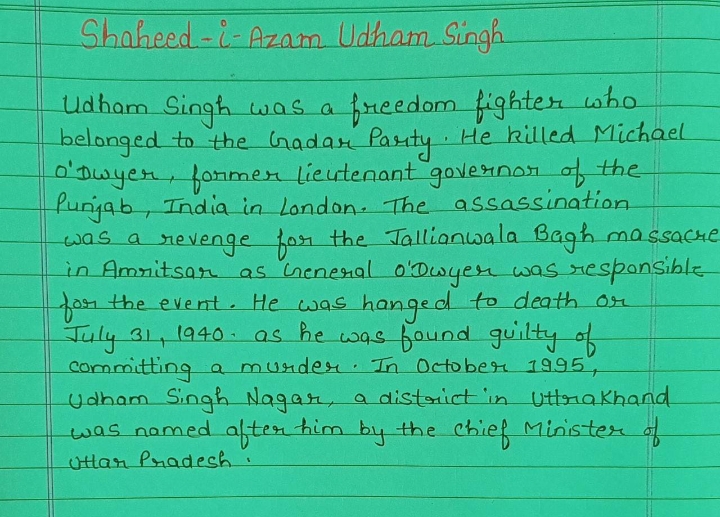 Shaheed-i-Azam Udham Singh
Udham Singh was a freedom fighter who
belonged to the Gadar Party. He killed Michael
O'Dwyer, former lieutenant governor of the
Punjab, India in London. The assassination
was a revenge for the Jallianwala Bagh massacre
in Amritsar as General O'Dwyer was responsible
for the event. He was hanged to death on
July 31, 1940. as he was found guilty of
committing a murder. In October 1995,
Udham Singh Nagar, a district in Uttrakhand
was named after him by the Chief Minister of
Uttar Pradesh.